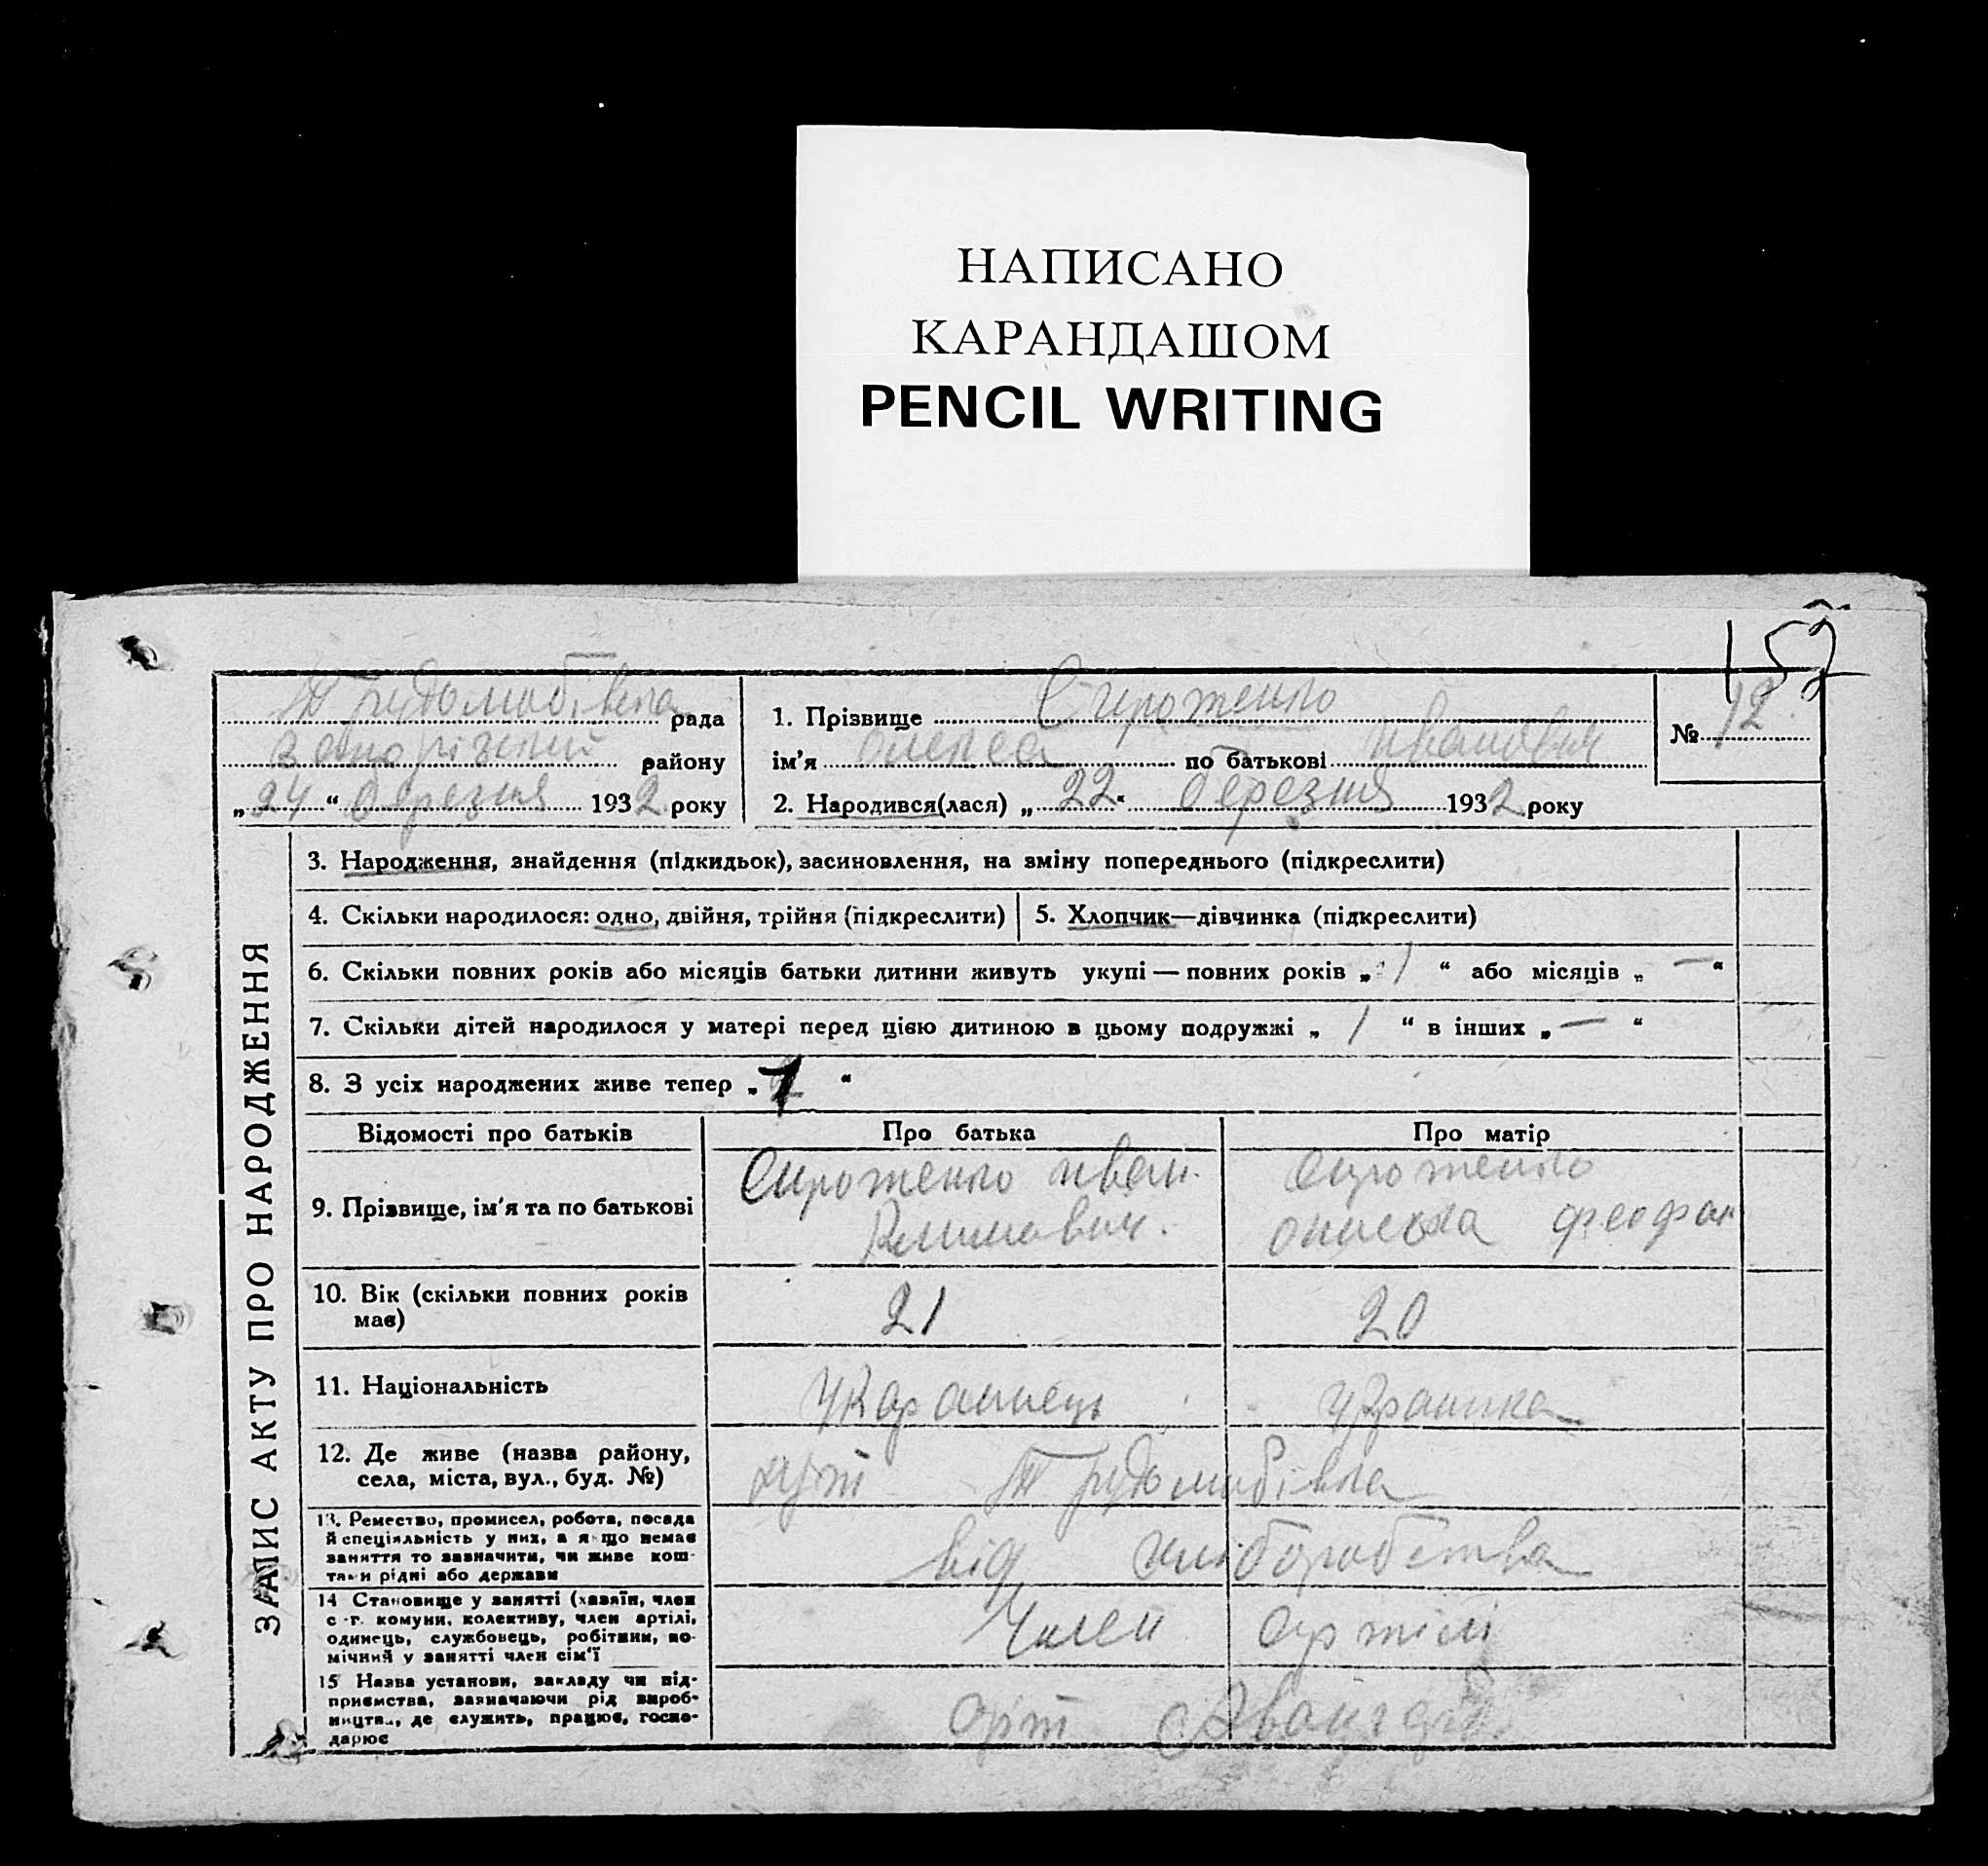 НАПИСАНО
КАРАНДАШОМ
PENCIL WRITING
152
Трудолюбівка рада
запорізький району
„24“ березня 1932 року
1. Прізвище Сироженко
ім'я олекса по батькові Иванович
2. Народився(лася) „22“ березня 1932 року
№ 12
ЗАПИС АКТУ ПРО НАРОДЖЕННЯ
3. Народження, знайдення (підкидьок), засиновлення, на зміну попереднього (підкреслити)
4. Скільки народилося: одно, двійня, трійня (підкреслити)
5. Хлопчик—дівчинка (підкреслити)
6. Скільки повних років або місяців батьки дитини живуть укупі — повних років „ 1 “ або місяців „ — “
7. Скільки дітей народилося у матері перед цією дитиною в цьому подружжі „ 1 “ в інших „ — “
8. З усіх народжених живе тепер „ “
Відомості про батьків
Про батька
Про матір
9. Прізвище, ім'я та по батькові
Сироженко иван.
Климович.
Сироженко
феофан
10. Вік (скільки повних років
має)
21
20
11. Національність
Украинець
Украинка
12. Де живе (назва району,
села, міста, вул., буд. №)
хут Трудолюбівка
13. Ремество, промисел, робота, посада
й спеціяльність у них, а якщо немає
заняття то зазначити, чи живе кош-
тами рідні або держави
від хліборобства
14 Становище у занятті (хазяїн, член
с.-г. комуни, колективу, член артілі,
одинець, службовець, робітник, по-
мічний у занятті член сім'ї
Член артілі
15 Назва установи, закладу чи під-
приємства, зазначаючи рід вироб-
ництва, де служить, працює, госпо-
дарює
арт Авангард.